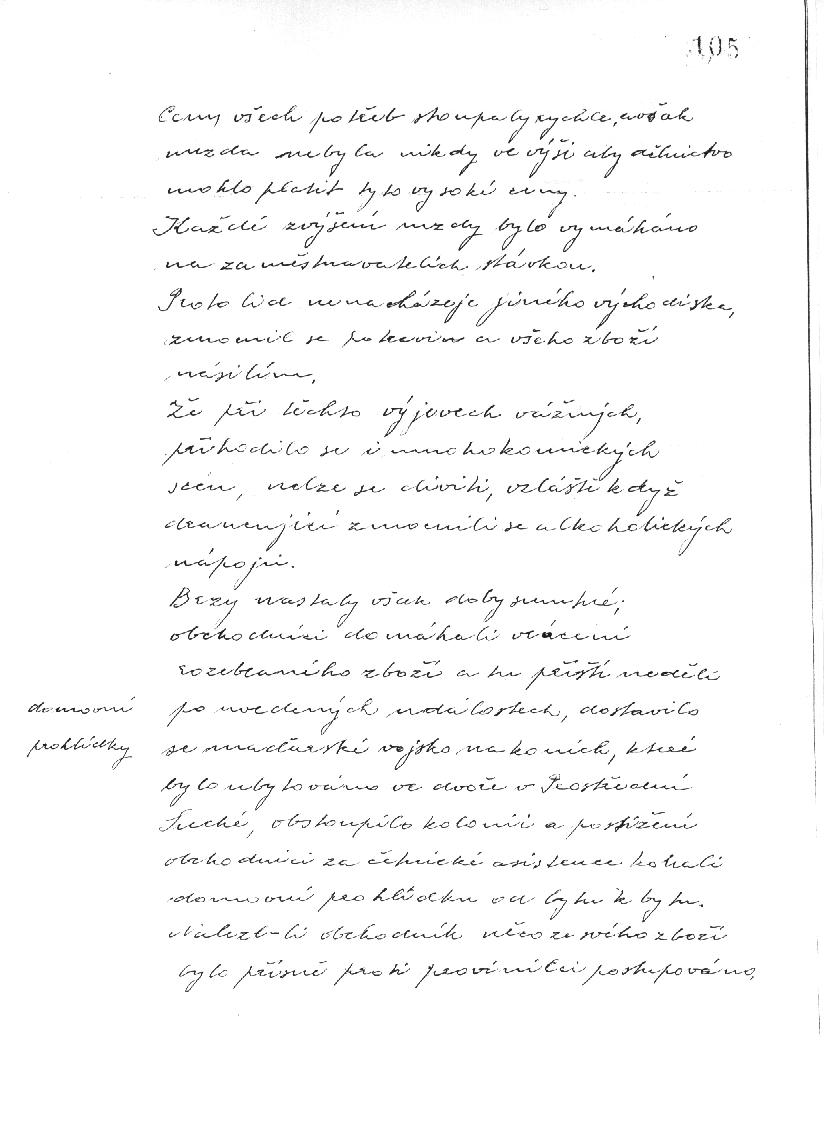 105
Ceny všech potřeb stoupaly rychle, avšak
mzda nebyla nikdy ve výši aby dělnictvo
mohlo platit tyto vysoké ceny.
Každé zvýšení mzdy bylo vymáháno
na zaměstnavatelích stávkou.
Proto lid nenacházeje jiného východiska,
zmocnil se potravin a všeho zboží
násilím.
Že při těchto výjevech vážných,
přihodilo se i mnoho komických
scén, nelze se diviti, vzláště když
dranсující zmocnili se alkoholických
nápojů.
Brzy nastaly však doby smutné;
obchodníci domáhali vrácení
rozebraného zboží a tu příští neděli
domovní
po uvedených událostech, dostavilo
prohlídky
se maďarské vojsko na koních, které
bylo ubytováno ve dvoře v Prostřední
Suché, obstoupilo kolonii a postižení
obchodníci za četnické asistence konali
domovní prohlídku od bytu k bytu.
Nalezl-li obchodník něco ze svého zboží
bylo přísně proti provinilci postupováno,